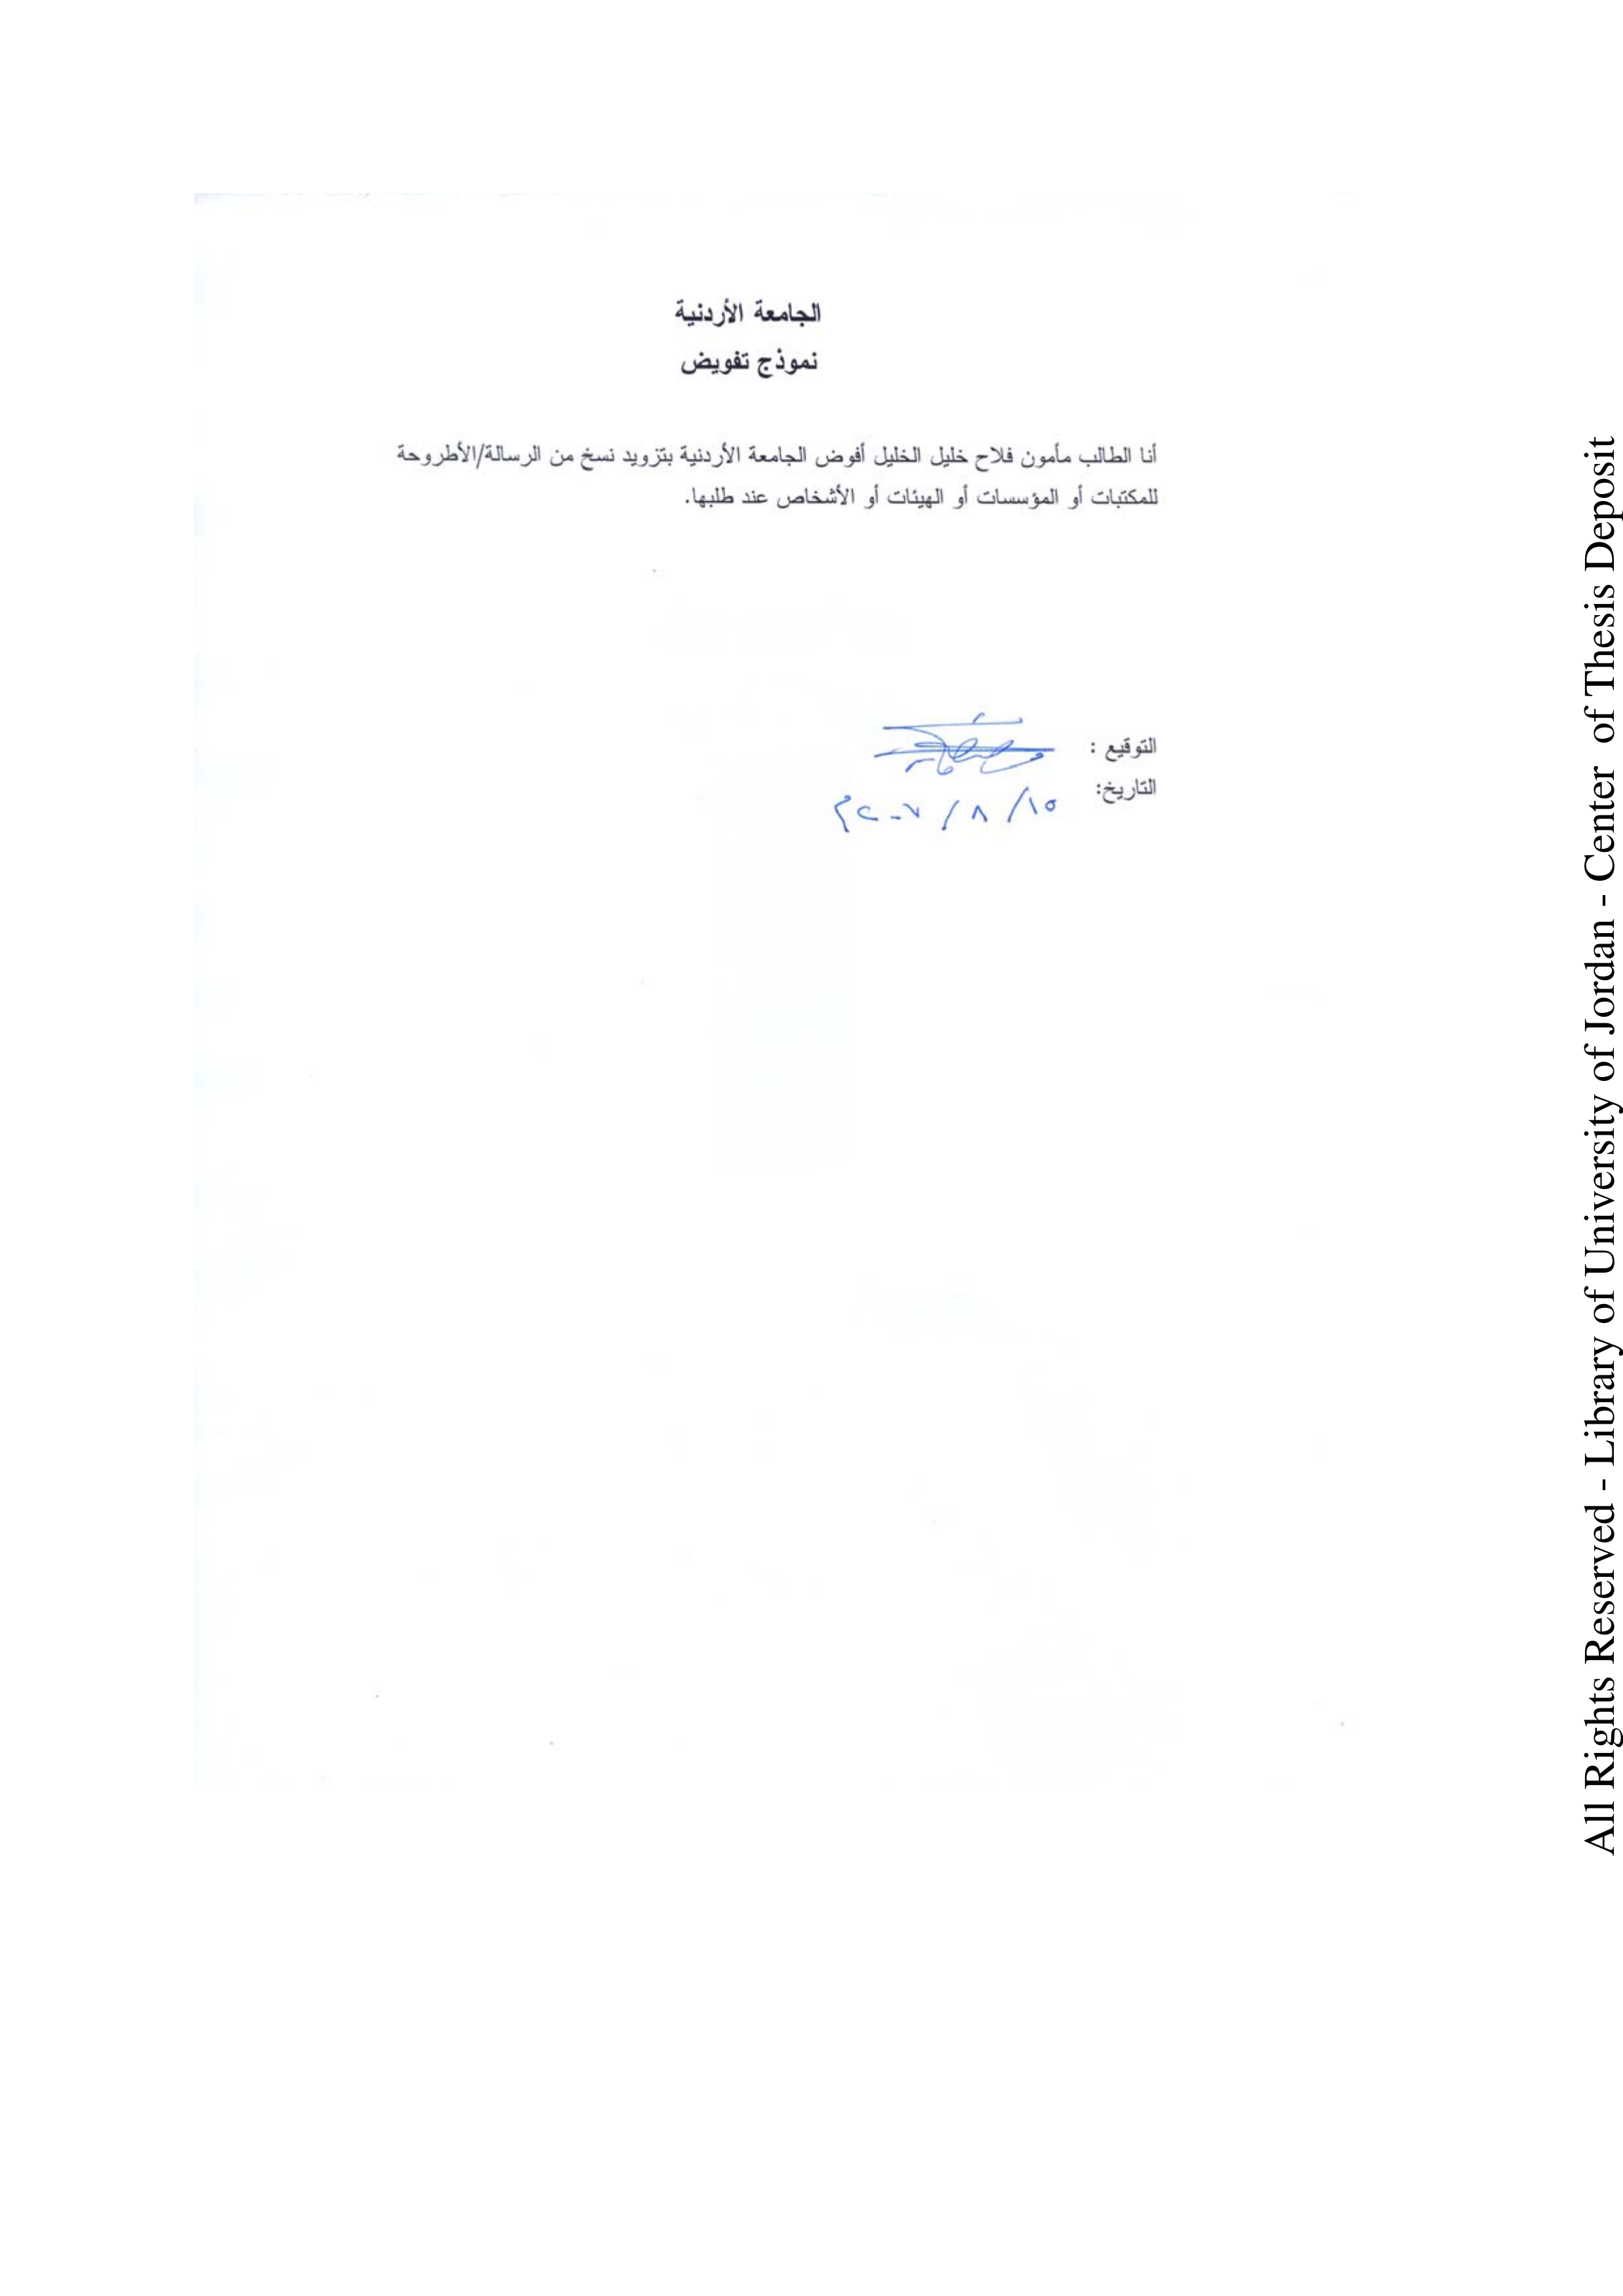 الجامعة الأردنية
نموذج تفويض
أنا الطالب مأمون فلاح خليل الخليل أفوض الجامعة الأردنية بتزويد نسخ من الرسالة/الأطروحة
للمكتبات أو المؤسسات أو الهيئات أو الأشخاص عند طلبها.
التوقيع :
التاريخ: ١٥/ ٨ / ٢٠٠٧م
All Rights Reserved - Library of University of Jordan - Center of Thesis Deposit